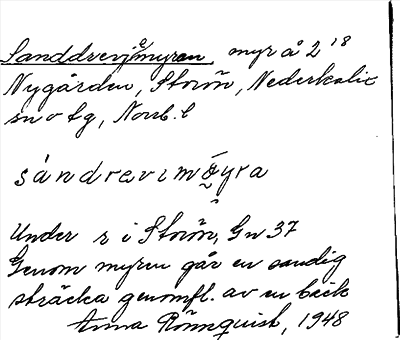 Sanddrevjemyran, myr å 2 18
Nygården, Storön, Nederkalix
sn o tg, Norrb. l
sándrevimöyra
Under r i Storön, Gn 37
Genom myren går en sandig
sträcka genomfl. av en bäck
Anna Rönnquist, 1948